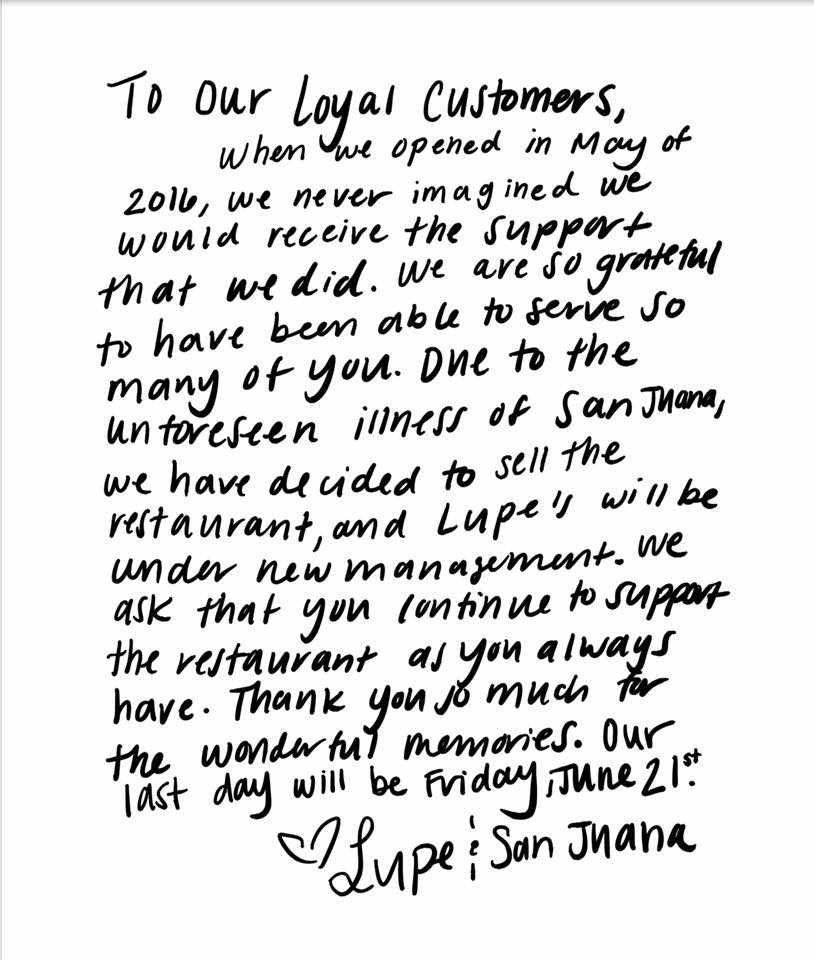 To Our Loyal Customers,
When we opened in May of
2016, we never imagined we
would receive the support
that we did. We are so grateful
to have been able to serve so
many of you. Due to the
unforeseen illness of San Juana,
we have decided to sell the
restaurant, and Lupe's will be
under new management. We
ask that you continue to support
the restaurant as you always
have. Thank you so much for
the wonderful memories. Our
last day will be Friday, June 21st.
♡ Lupe & San Juana